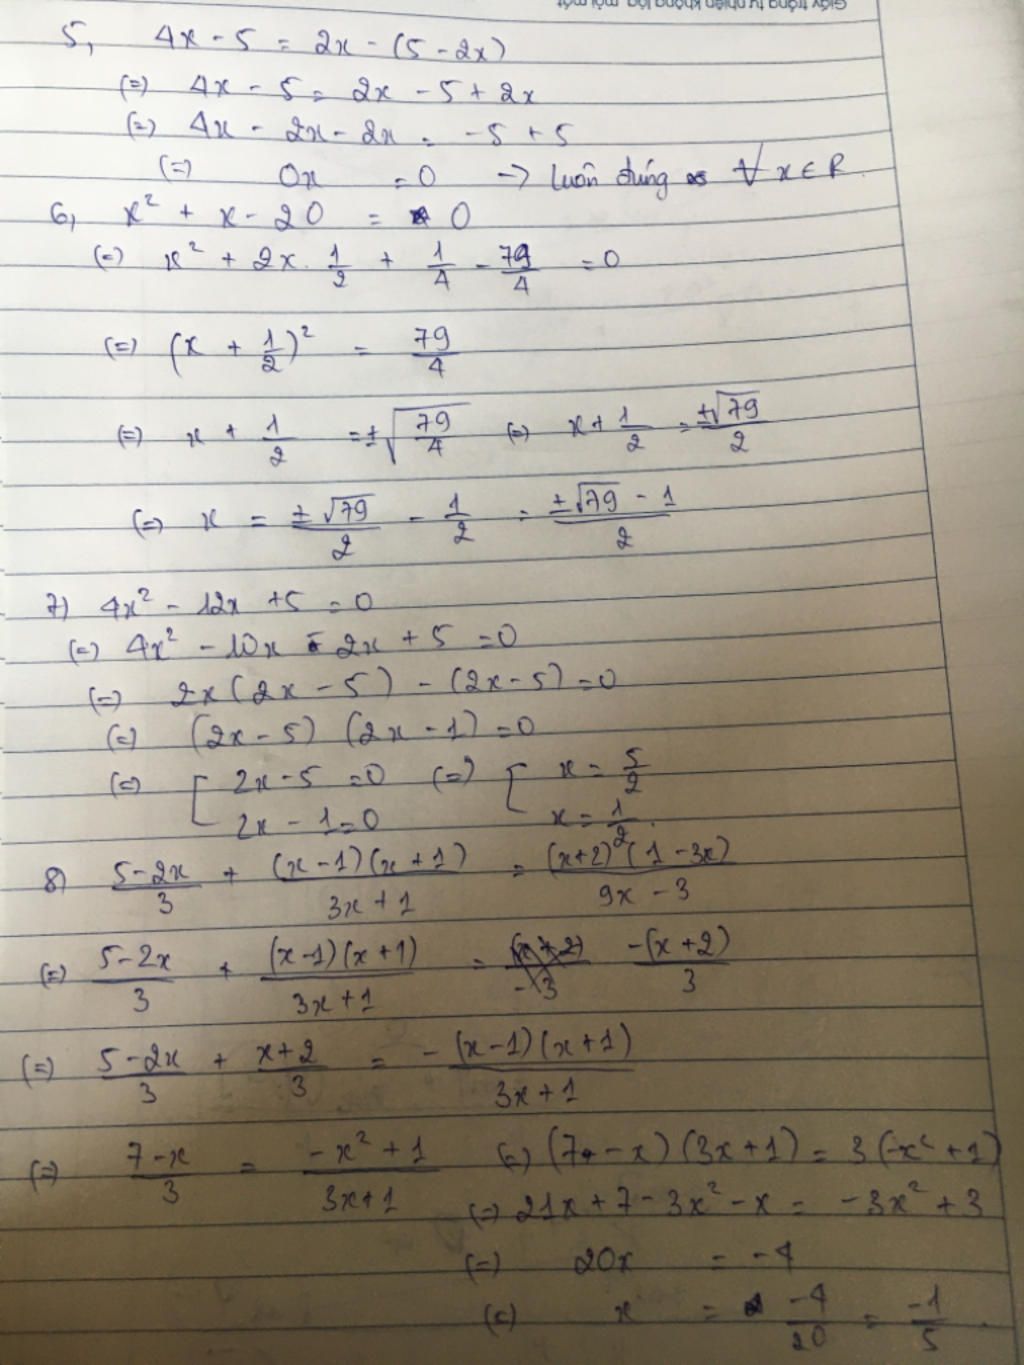 Giấy trắng tự nhiên không lóa, mỏi mắt
5, 4x - 5 = 2x - (5 - 2x)
(=) 4x - 5 = 2x - 5 + 2x
(=) 4x - 2x - 2x = -5 + 5
(=) 0x = 0 -> luôn đúng ∀ x ∈ R.
6, x² + x - 20 = 0
(=) x² + 2x. 1/2 + 1/4 - 79/4 = 0
(=) (x + 1/2)² = 79/4
(=) x + 1/2 = ±√(79/4) (=) x + 1/2 = ±√79/2
(=) x = ±√79/2 - 1/2 = (±√79 - 1)/2
7) 4x² - 12x + 5 = 0
(=) 4x² - 10x - 2x + 5 = 0
(=) 2x(2x - 5) - (2x - 5) = 0
(=) (2x - 5) (2x - 1) = 0
(=) [ 2x - 5 = 0 (=) [ x = 5/2
2x - 1 = 0 x = 1/2.
8) (5 - 2x)/3 + (x - 1)(x + 1)/(3x + 1) = (x + 2)(1 - 3x)/(9x - 3)
(=) (5 - 2x)/3 + (x - 1)(x + 1)/(3x + 1) = -(x + 2)/3
(=) (5 - 2x)/3 + (x + 2)/3 = -(x - 1)(x + 1)/(3x + 1)
(=) (7 - x)/3 = (-x² + 1)/(3x + 1) (=) (7 - x)(3x + 1) = 3(-x² + 1)
(=) 21x + 7 - 3x² - x = -3x² + 3
(=) 20x = -4
(=) x = -4/20 = -1/5.